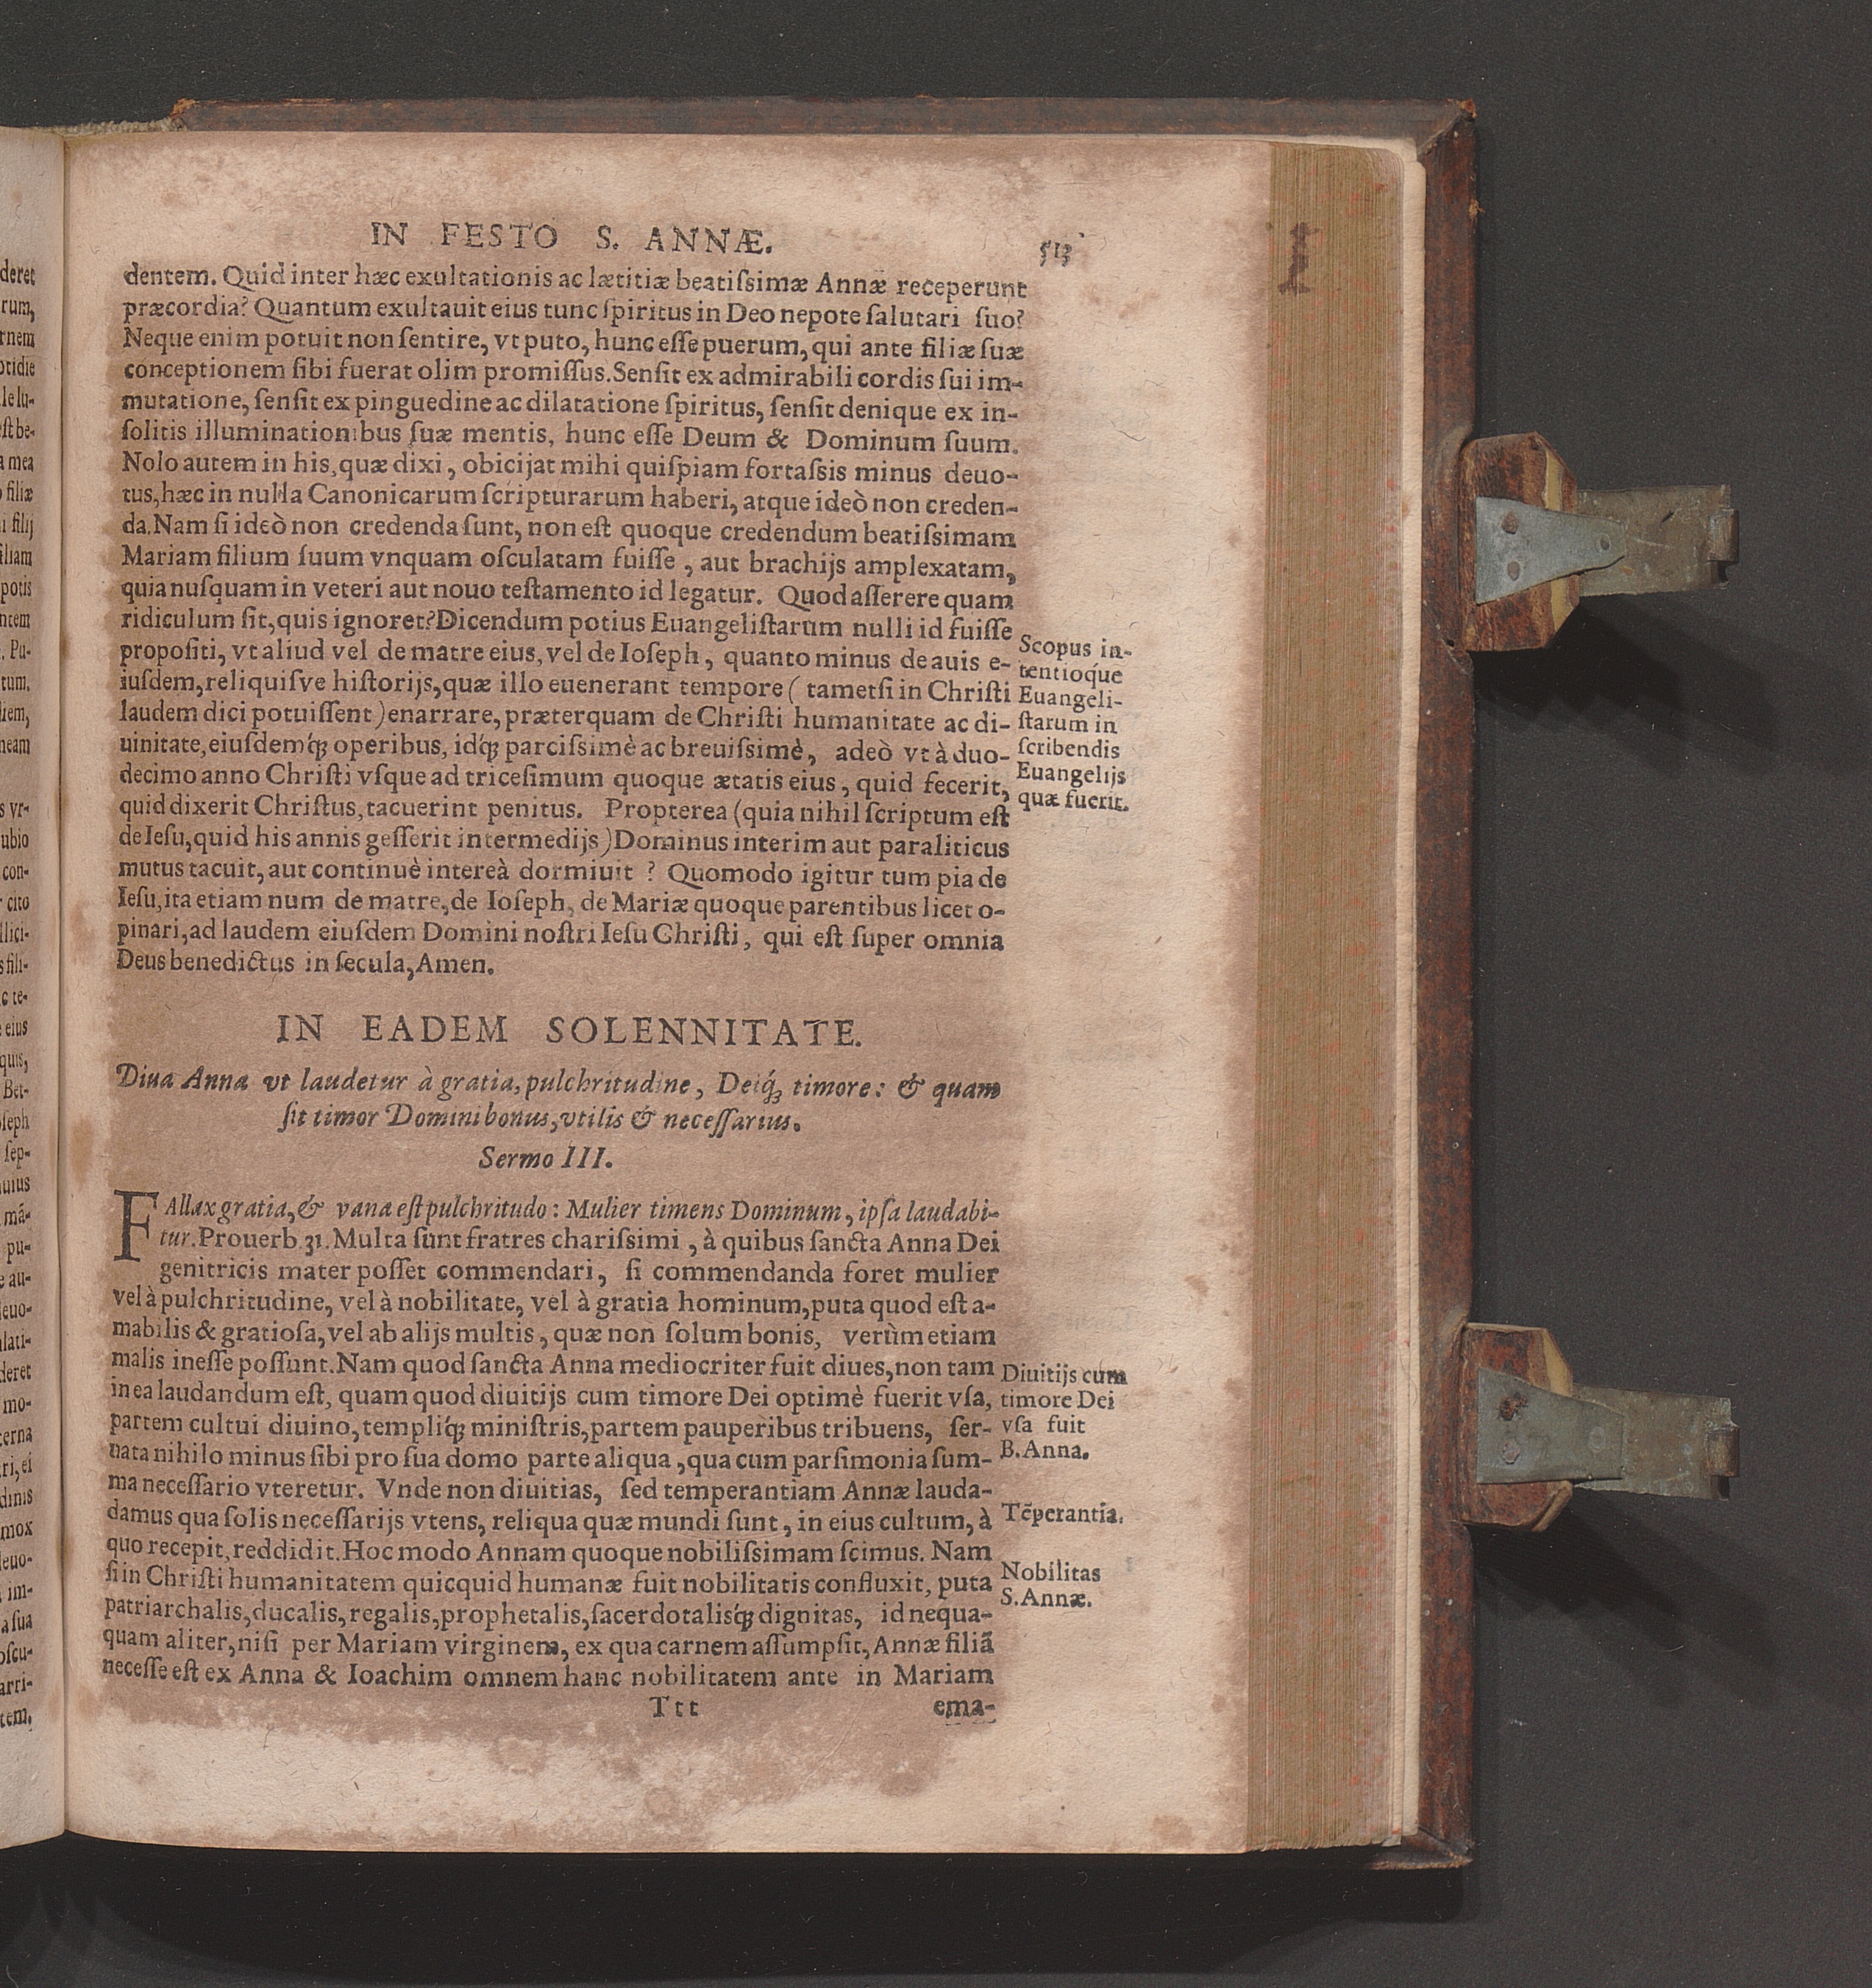 IN FESTO S. ANNÆ.
513
dentem. Quid inter hæc exultationis ac lætitiæ beatiſsimæ Annæ receperunt
præcordia? Quantum exultauit eius tunc ſpiritus in Deo nepote ſalutari ſuo?
Neque enim potuit non ſentire, vt puto, hunc eſſe puerum, qui ante filiæ ſuæ
conceptionem ſibi fuerat olim promiſſus. Senſit ex admirabili cordis ſui im-
mutatione, ſenſit ex pinguedine ac dilatatione ſpiritus, ſenſit denique ex in-
ſolitis illuminationibus ſuæ mentis, hunc eſſe Deum & Dominum ſuum.
Nolo autem in his, quæ dixi, obicijat mihi quiſpiam fortaſsis minus deuo-
tus, hæc in nulla Canonicarum ſcripturarum haberi, atque ideò non creden-
da. Nam ſi ideò non credenda ſunt, non eſt quoque credendum beatiſsimam
Mariam filium ſuum vnquam oſculatam fuiſſe, aut brachijs amplexatam,
quia nuſquam in veteri aut nouo teſtamento id legatur. Quod aſſerere quam
ridiculum ſit, quis ignoret? Dicendum potius Euangeliſtarum nulli id fuiſſe
propoſiti, vt aliud vel de matre eius, vel de Ioſeph, quanto minus de auis e-
iuſdem, reliquiſve hiſtorijs, quæ illo euenerant tempore (tametſi in Chriſti
laudem dici potuiſſent) enarrare, præterquam de Chriſti humanitate ac di-
uinitate, eiuſdemq́; operibus, idq́; parciſsimè ac breuiſsimè, adeò vt à duo-
decimo anno Chriſti vſque ad triceſimum quoque ætatis eius, quid fecerit,
quid dixerit Chriſtus, tacuerint penitus. Propterea (quia nihil ſcriptum eſt
de Ieſu, quid his annis geſſerit intermedijs) Dominus interim aut paraliticus
mutus tacuit, aut continuè intereà dormiuit? Quomodo igitur tum pia de
Ieſu, ita etiam num de matre, de Ioſeph, de Mariæ quoque parentibus licet o-
pinari, ad laudem eiuſdem Domini noſtri Ieſu Chriſti, qui eſt ſuper omnia
Deus benedictus in ſecula, Amen.
Scopus in-
tentioq́ue
Euangeli-
ſtarum in
ſcribendis
Euangelijs
quæ fuerit.
IN EADEM SOLENNITATE.
Diua Anna vt laudetur à gratia, pulchritudine, Deiq́; timore: & quam
ſit timor Domini bonus, vtilis & neceſſarius.
Sermo III.
FAllax gratia, & vana eſt pulchritudo: Mulier timens Dominum, ipſa laudabi-
tur. Prouerb 31. Multa ſunt fratres chariſsimi, à quibus ſancta Anna Dei
genitricis mater poſſet commendari, ſi commendanda foret mulier
vel à pulchritudine, vel à nobilitate, vel à gratia hominum, puta quod eſt a-
mabilis & gratioſa, vel ab alijs multis, quæ non ſolum bonis, verùm etiam
malis ineſſe poſſunt. Nam quod ſancta Anna mediocriter fuit diues, non tam
in ea laudandum eſt, quam quod diuitijs cum timore Dei optimè fuerit vſa,
partem cultui diuino, templiq́; miniſtris, partem pauperibus tribuens, ſer-
uata nihilo minus ſibi pro ſua domo parte aliqua, qua cum parſimonia ſum-
ma neceſſario vteretur. Vnde non diuitias, ſed temperantiam Annæ lauda-
damus qua ſolis neceſſarijs vtens, reliqua quæ mundi ſunt, in eius cultum, à
quo recepit, reddidit. Hoc modo Annam quoque nobiliſsimam ſcimus. Nam
ſi in Chriſti humanitatem quicquid humanæ fuit nobilitatis confluxit, puta
patriarchalis, ducalis, regalis, prophetalis, ſacerdotalisq́; dignitas, id nequa-
quam aliter, niſi per Mariam virginem, ex qua carnem aſſumpſit, Annæ filiã
neceſſe eſt ex Anna & Ioachim omnem hanc nobilitatem ante in Mariam
Diuitijs cum
timore Dei
vſa fuit
B. Anna.
Tẽperantia.
Nobilitas
S. Annæ.
Ttt
ema-